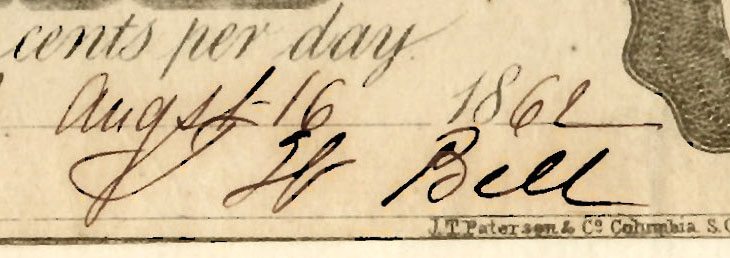 cents per day
Augst 16 1862
J W Bell
J.T. Paterson & Co Columbia S.C